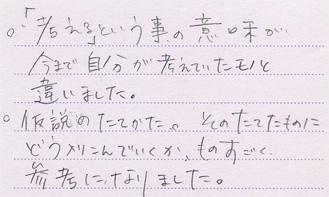 ○「考える」という事の意味が
今まで自分が考えていたモノと
違いました。
○仮説のたてかた。そのたてたものに
どうメリこんでいくか、ものすごく
参考になりました。